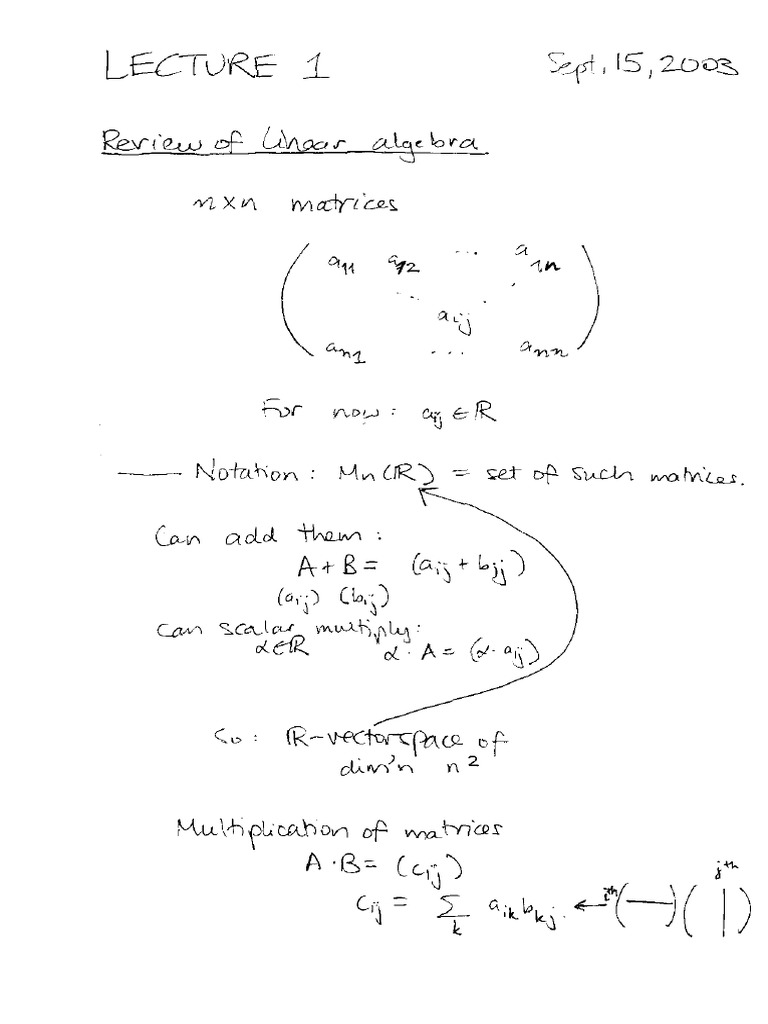 LECTURE 1 Sept. 15, 2003
Review of linear algebra
n×n matrices
a11 a12 ... a1n
... aij .
an1 ... ann
For now: aij ∈ ℝ
— Notation: Mn(ℝ) = set of such matrices.
Can add them:
A + B = (aij + bjj)
(aij) (bij)
can scalar multiply:
α∈ℝ α · A = (α · aij)
So: ℝ-vectorspace of
dim'n n²
Multiplication of matrices
A · B = (cij)
jth
cij = Σk aik bkj. ← ith (—) ( | )